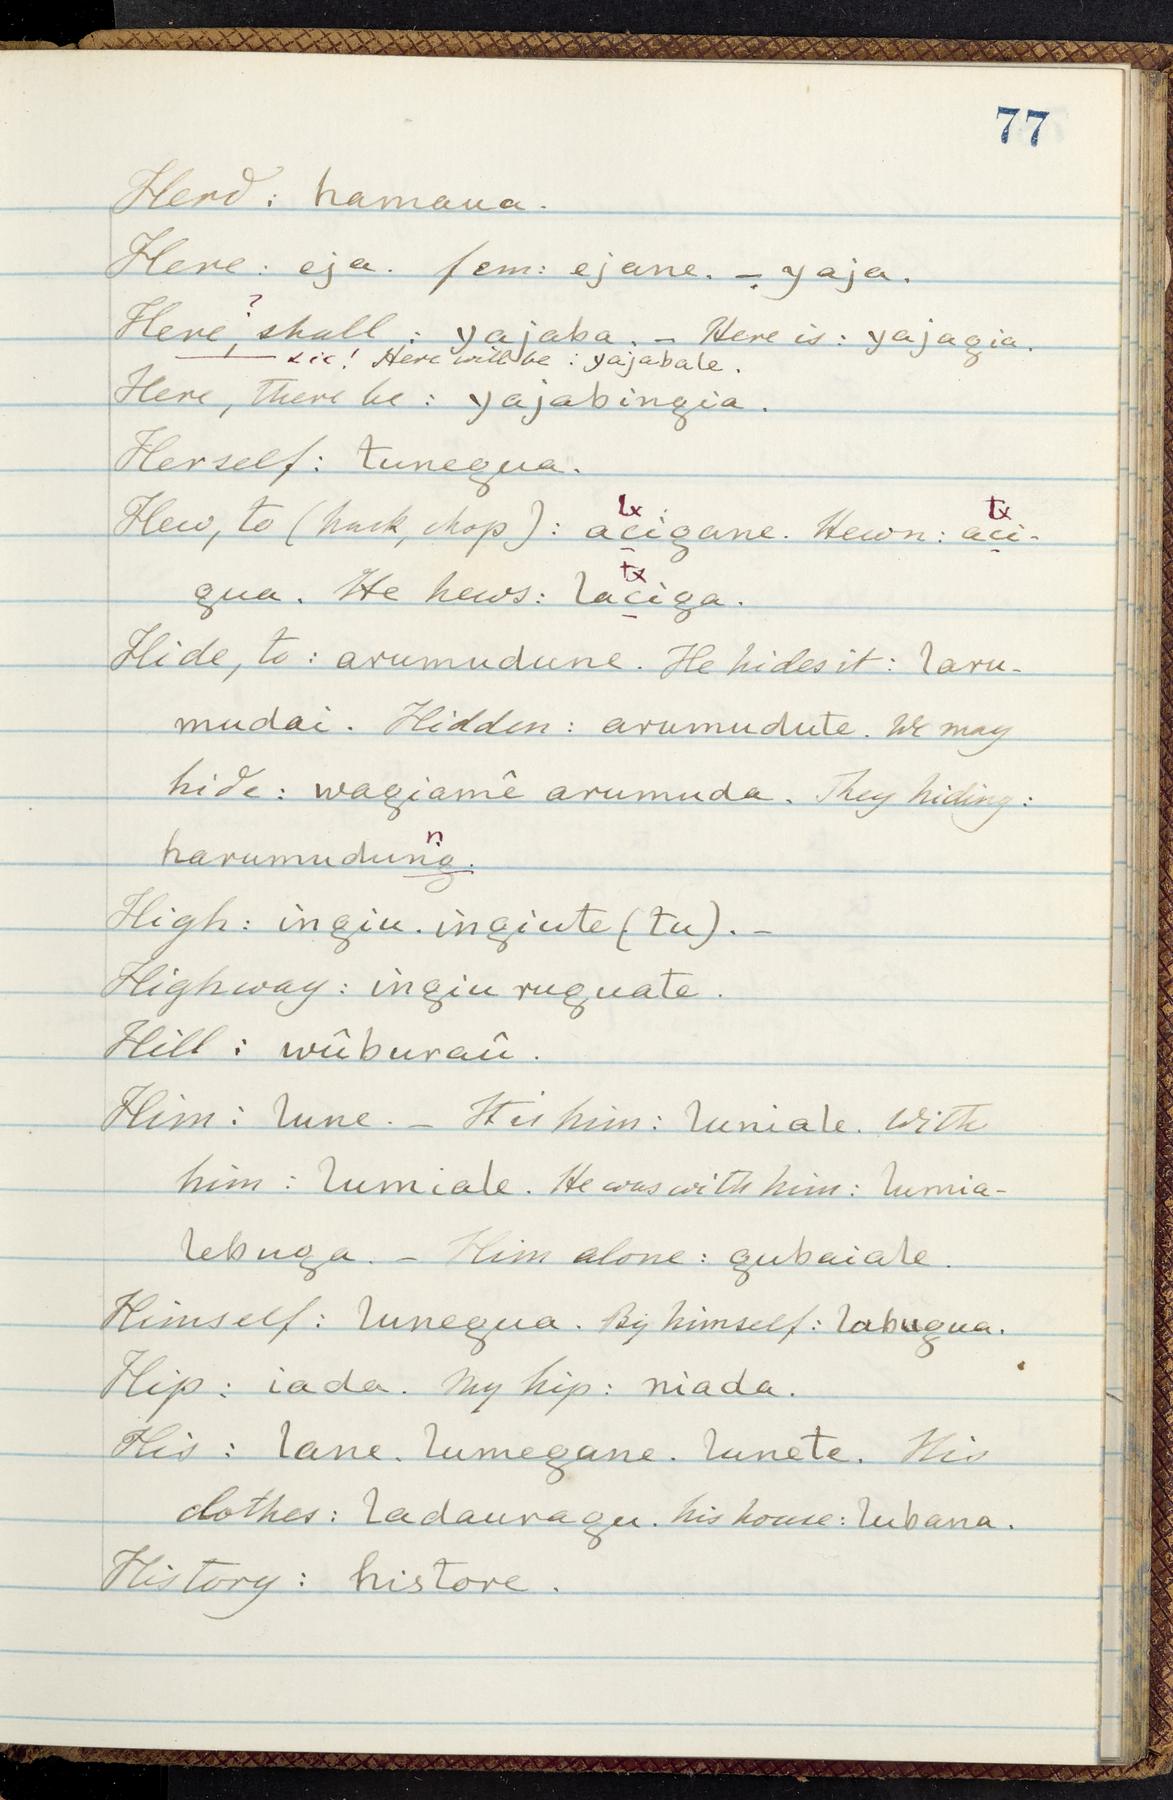 77
Herd: hamaua.
Here: eja. fem: ejane. – yaja.
?
Here, shall: yajaba. – Here is: yajagia.
sic! Here will be: yajabale.
Here, there be: yajabingia.
Herself: tunegua.
tx tx
Hew, to (hack, chop): acigane. Hewn: aci-
tx
gua. He hews: laciga.
Hide, to: arumudune. He hides it: laru-
mudai. Hidden: arumudute. We may
hide: wagiamê arumuda. They hiding:
n
harumudung.
High: ingiu. ingiute (tu). –
Highway: ingiu ruguate.
Hill: wûburaû.
Him: lune. – It is him: luniale. With
him: lumiale. He was with him: lumia-
lebuga. – Him alone: gubaiale.
Himself: lunegua. By himself: labugua.
Hip: iada. My hip: niada.
His: lane. lumegane. lunete. His
clothes: ladauragu. his house: lubana.
History: histore.